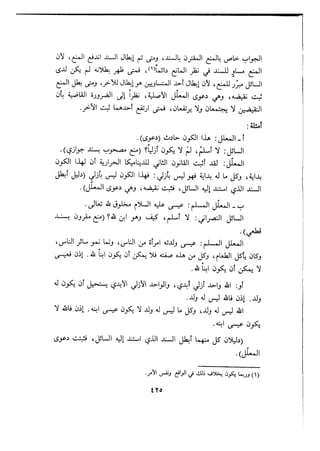 الجواب خاص بالمنع المقترن بالسند، ومتى تم إبطال السند اندفع المنع، لأن
المنع مساوٍ للسند في نظر المانع دائماً(١)، فمتى ظهر بطلانه لم يكن لدى
السائل مبرّر للمنع، لأن إبطال أحد المتساويين هو إبطال للآخر، ومتى بطل المنع
ثبت نقيضه، وهي دعوى المعلّل الأصلية، نظراً إلى الضرورة القاضية بأن
النقيضين لا يجتمعان ولا يرتفعان، فمتى ارتفع أحدهما ثبت الآخر.
أمثلة:
أ - المعلل: هذا الكون حادث (دعوى).
السائل: لا أسلم، لم لا يكون أزلياً؟ (منع مصحوب بسند جوازي).
المعلل: لقد أثبت القانون الثاني للديناميكا الحرارية أن لهذا الكون
بداية، وكل ما له بداية فهو ليس بأزلي: فهذا الكون ليس بأزلي (دليل أبطل
السند الذي استند إليه السائل، فثبت نقيضه، وهي دعوى المعلل).
ب - المعلل المسلم: عيسى عليه السلام مخلوق لله تعالى.
السائل النصراني: لا أسلم، كيف وهو ابن لله؟ (منع مقرون بسند
قطعي).
المعلل المسلم: عيسى ولدته امرأة من الناس، ونما نمو سائر الناس،
وكان يأكل الطعام، وكل من هذه صفته فلا يمكن أن يكون ابناً لله. إذن فعيسى
لا يمكن أن يكون ابناً لله.
أو: الله واحد أزلي أبدي، والواحد الأزلي الأبدي يستحيل أن يكون له
ولد. إذن فالله ليس له ولد.
الله ليس له ولد، وكل ما ليس له ولد لا يكون عيسى ابنه. إذن فالله لا
يكون عيسى ابنه.
(دليلان كل منهما أبطل السند الذي استند إليه السائل، فثبتت دعوى
المعلّل).
(١) وربما يكون بخلاف ذلك في الواقع ونفس الأمر.
٤٢٥